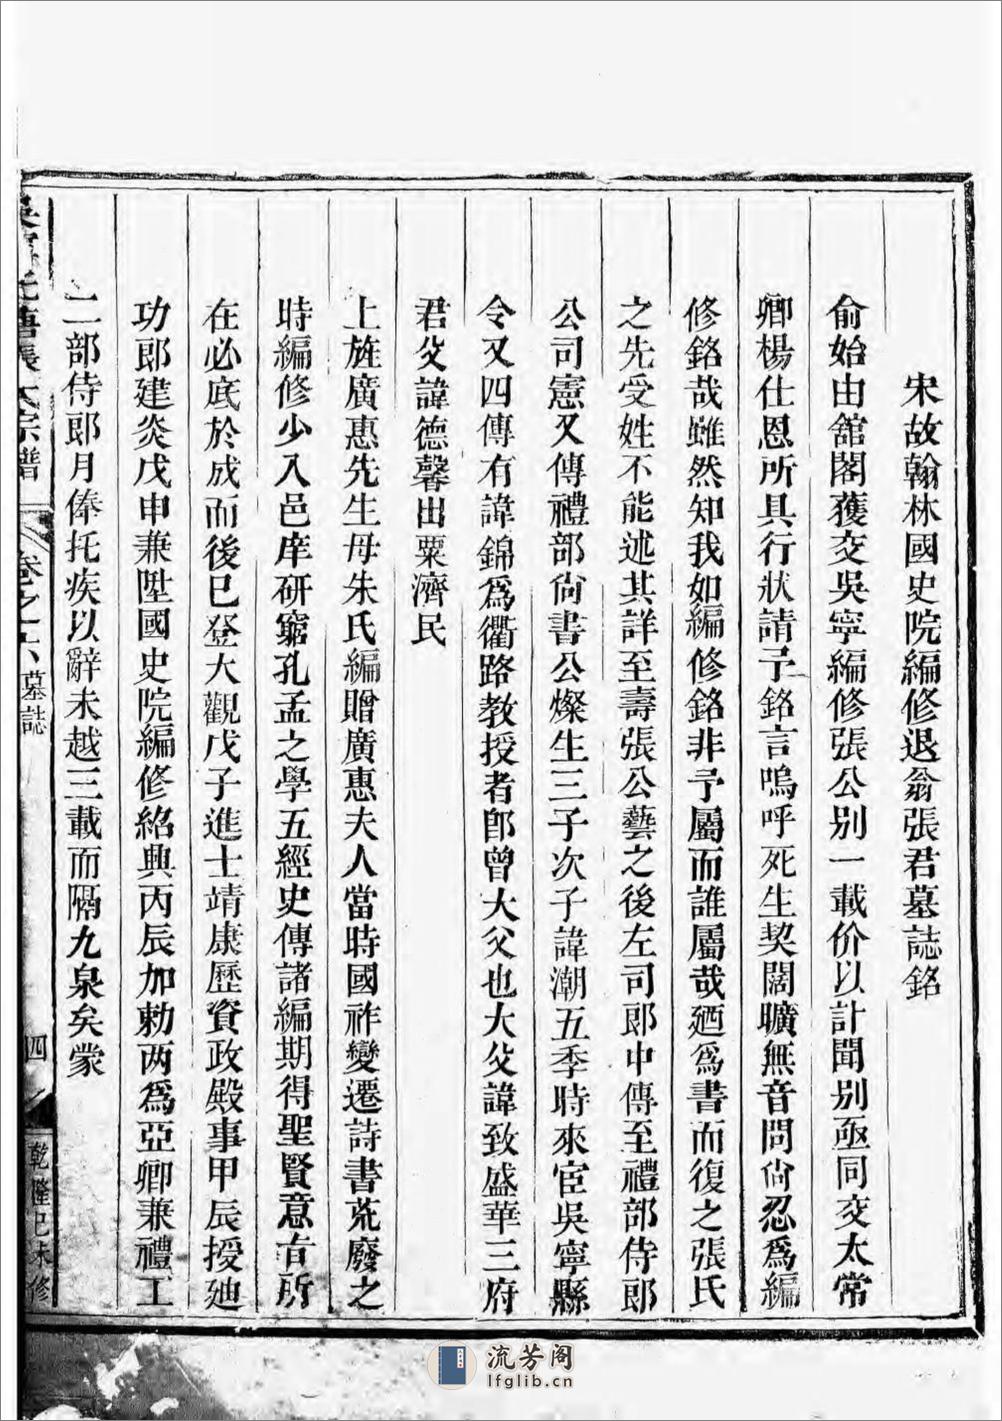 宋故翰林國史院編修退翁張君墓誌銘
俞始由舘閣獲交吳寧編修張公别一載价以計聞别亟同交太常
卿楊仕恩所具行狀請予銘言嗚呼死生契闊曠無音問尙忍爲編
修銘哉雖然知我如編修銘非予屬而誰屬哉廼爲書而復之張氏
之先受姓不能述其詳至壽張公藝之後左司郎中傳至禮部侍郎
公司憲又傳禮部尙書公燦生三子次子諱潮五季時來宦吳寧縣
令又四傳有諱錦爲衢路教授者郎曾大父也大父諱致盛華三府
君父諱德馨出粟濟民
上旌廣惠先生母朱氏編贈廣惠夫人當時國祚變遷詩書荒廢之
時編修少入邑庠研窮孔孟之學五經史傳諸編期得聖賢意㫖所
在必底於成而後已登大觀戊子進士靖康歷資政殿事甲辰授廸
功郎建炎戊申兼陞國史院編修紹興丙辰加勅两爲亞卿兼禮工
二部侍郎月俸托疾以辭未越三載而隔九泉矣蒙
張氏宗譜
卷之六 墓誌
四
乾隆己未修
流芳阁
lfglib.cn